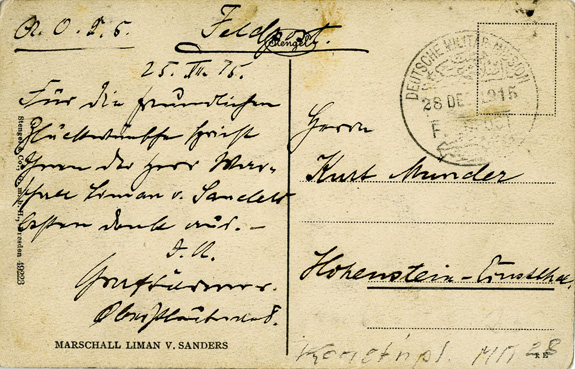 Feldpost.
Stengel
25. XII. 15.
Für die freundlichen
Glückwünsche spricht
Ihnen der Herr Mar-
schall Liman v. Sanders
besten Dank aus. –
I. A.
Oberstleutnant.
MARSCHALL LIMAN V. SANDERS
Stengel & Co., G. m. b. H., Dresden 49223
DEUTSCHE MILITÄR MISSION
28 DEZ 1915
Herrn
Kurt Munder
Hohenstein-Ernstthal